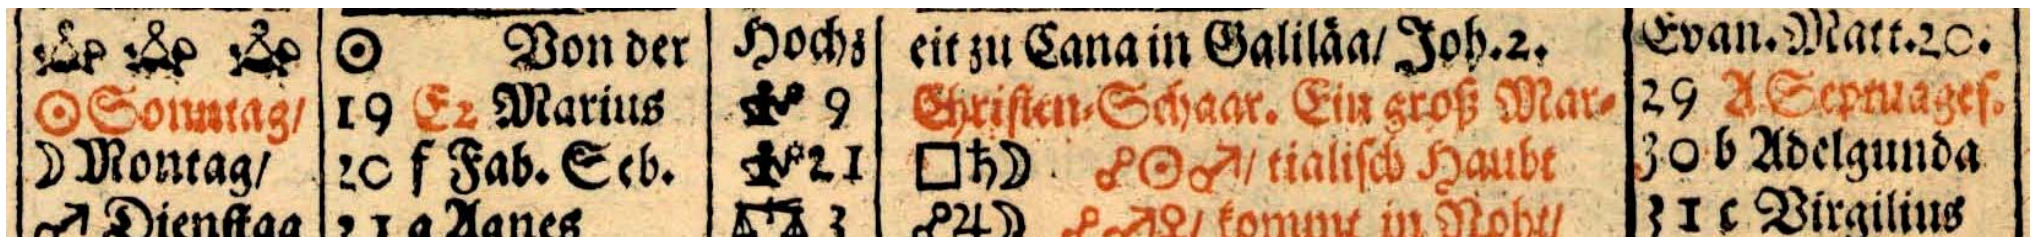 ☉ Von der Hochz eit zu Cana in Galiläa/ Joh. 2. Evan. Matt. 20.
☉ Sonntag/ 19 E2 Marius 9 Christen-Schaar. Ein groß Mar- 29 A Septuages.
☽ Montag/ 20 f Fab. Seb. 21 □♄☽ ☍☉♂/ tialisch Haubt 30 b Adelgunda
♂ Dienstag 21 g Agnes ♎ 3 ☍♃☽ ☍♂♀/ kommt in Noht/ 31 c Virgilius